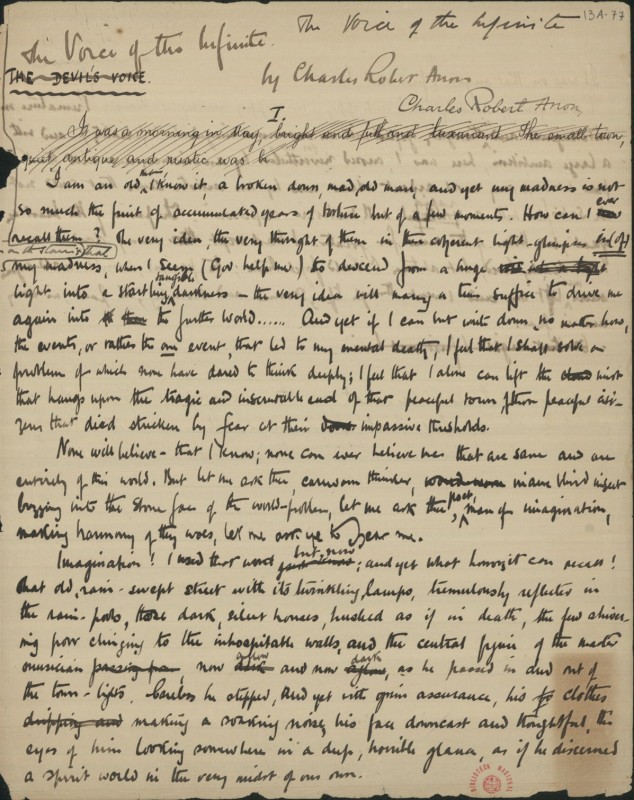 13A-77
The Voice of the Infinite
The Voice of the Infinite.
THE DEVILS VOICE.
by Charles Robert Anon
Charles Robert Anon
I.
It was a morning in May, bright and full and luxuriant. The small town,
quiet antique and rustic was b
I am an old, I know it, a broken down, mad, old man, and yet my madness is not
so much the fruit of accumulated years of torture but of a few moments. How can I ever
recall them? The very idea, the very thought of them in this coherent light-glimpses in (of)
my madness, when I seem (God help me) to descend from a huge
light into a startling tangible darkness — the very idea will many a time suffice to drive me
again into the further world...... And yet if I can but write down, no matter how,
the events, or rather the one event, that led to my mental death, I feel that I shall solve a
problem of which none have dared to think deeply; I feel that I alone can lift the mist
that hangs upon the tragic and inscrutable end of that peaceful town, of those peaceful citi-
zens that died stricken by fear at their impassive thresholds.
None will believe - that I know; none can ever believe me that are sane and are
entirely of this world. But let me ask thee, careworn thinker, inane blind insect
buzzing into the stone face of the world-problem, let me ask thee, poet, man of imagination,
making harmony of thy woes, let me ask ye to hear me.
Imagination! I used that word but now; and yet what horror it can recall!
That old, rain-swept street with its twinkling lamps, tremulously reflected in
the rain-pools, those dark, silent houses, hushed as if in death, the few shiver-
ing poor clinging to the inhospitable walls, and the central figure of the master
musician passing, now aglow and now dark, as he passed in and out of
the town-lights. Careless he stepped, and yet with grim assurance, his clothes
dripping and making a soaking noise, his face downcast and thoughtful, the
eyes of him looking somewhere in a deep, horrible glance, as if he discerned
a spirit world in the very midst of our own.